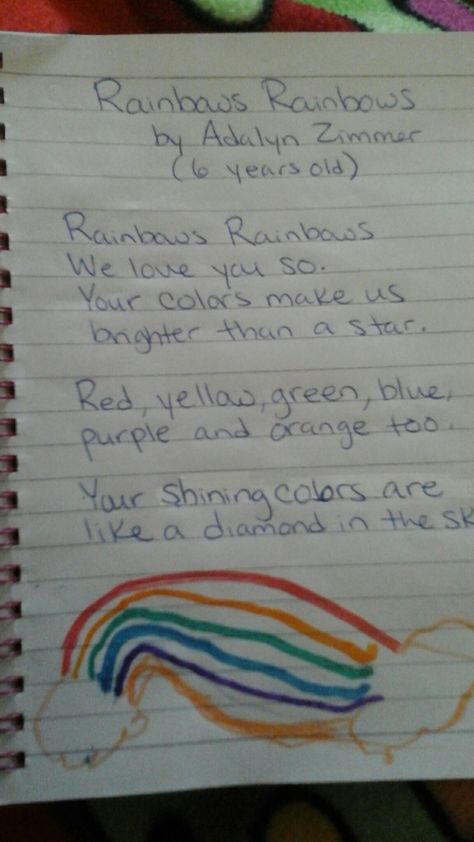 Rainbows Rainbows
by Adalyn Zimmer
(6 years old)
Rainbows Rainbows
We love you so.
Your colors make us
brighter than a star.
Red, yellow, green, blue,
purple and orange too.
Your shining colors are
like a diamond in the sk